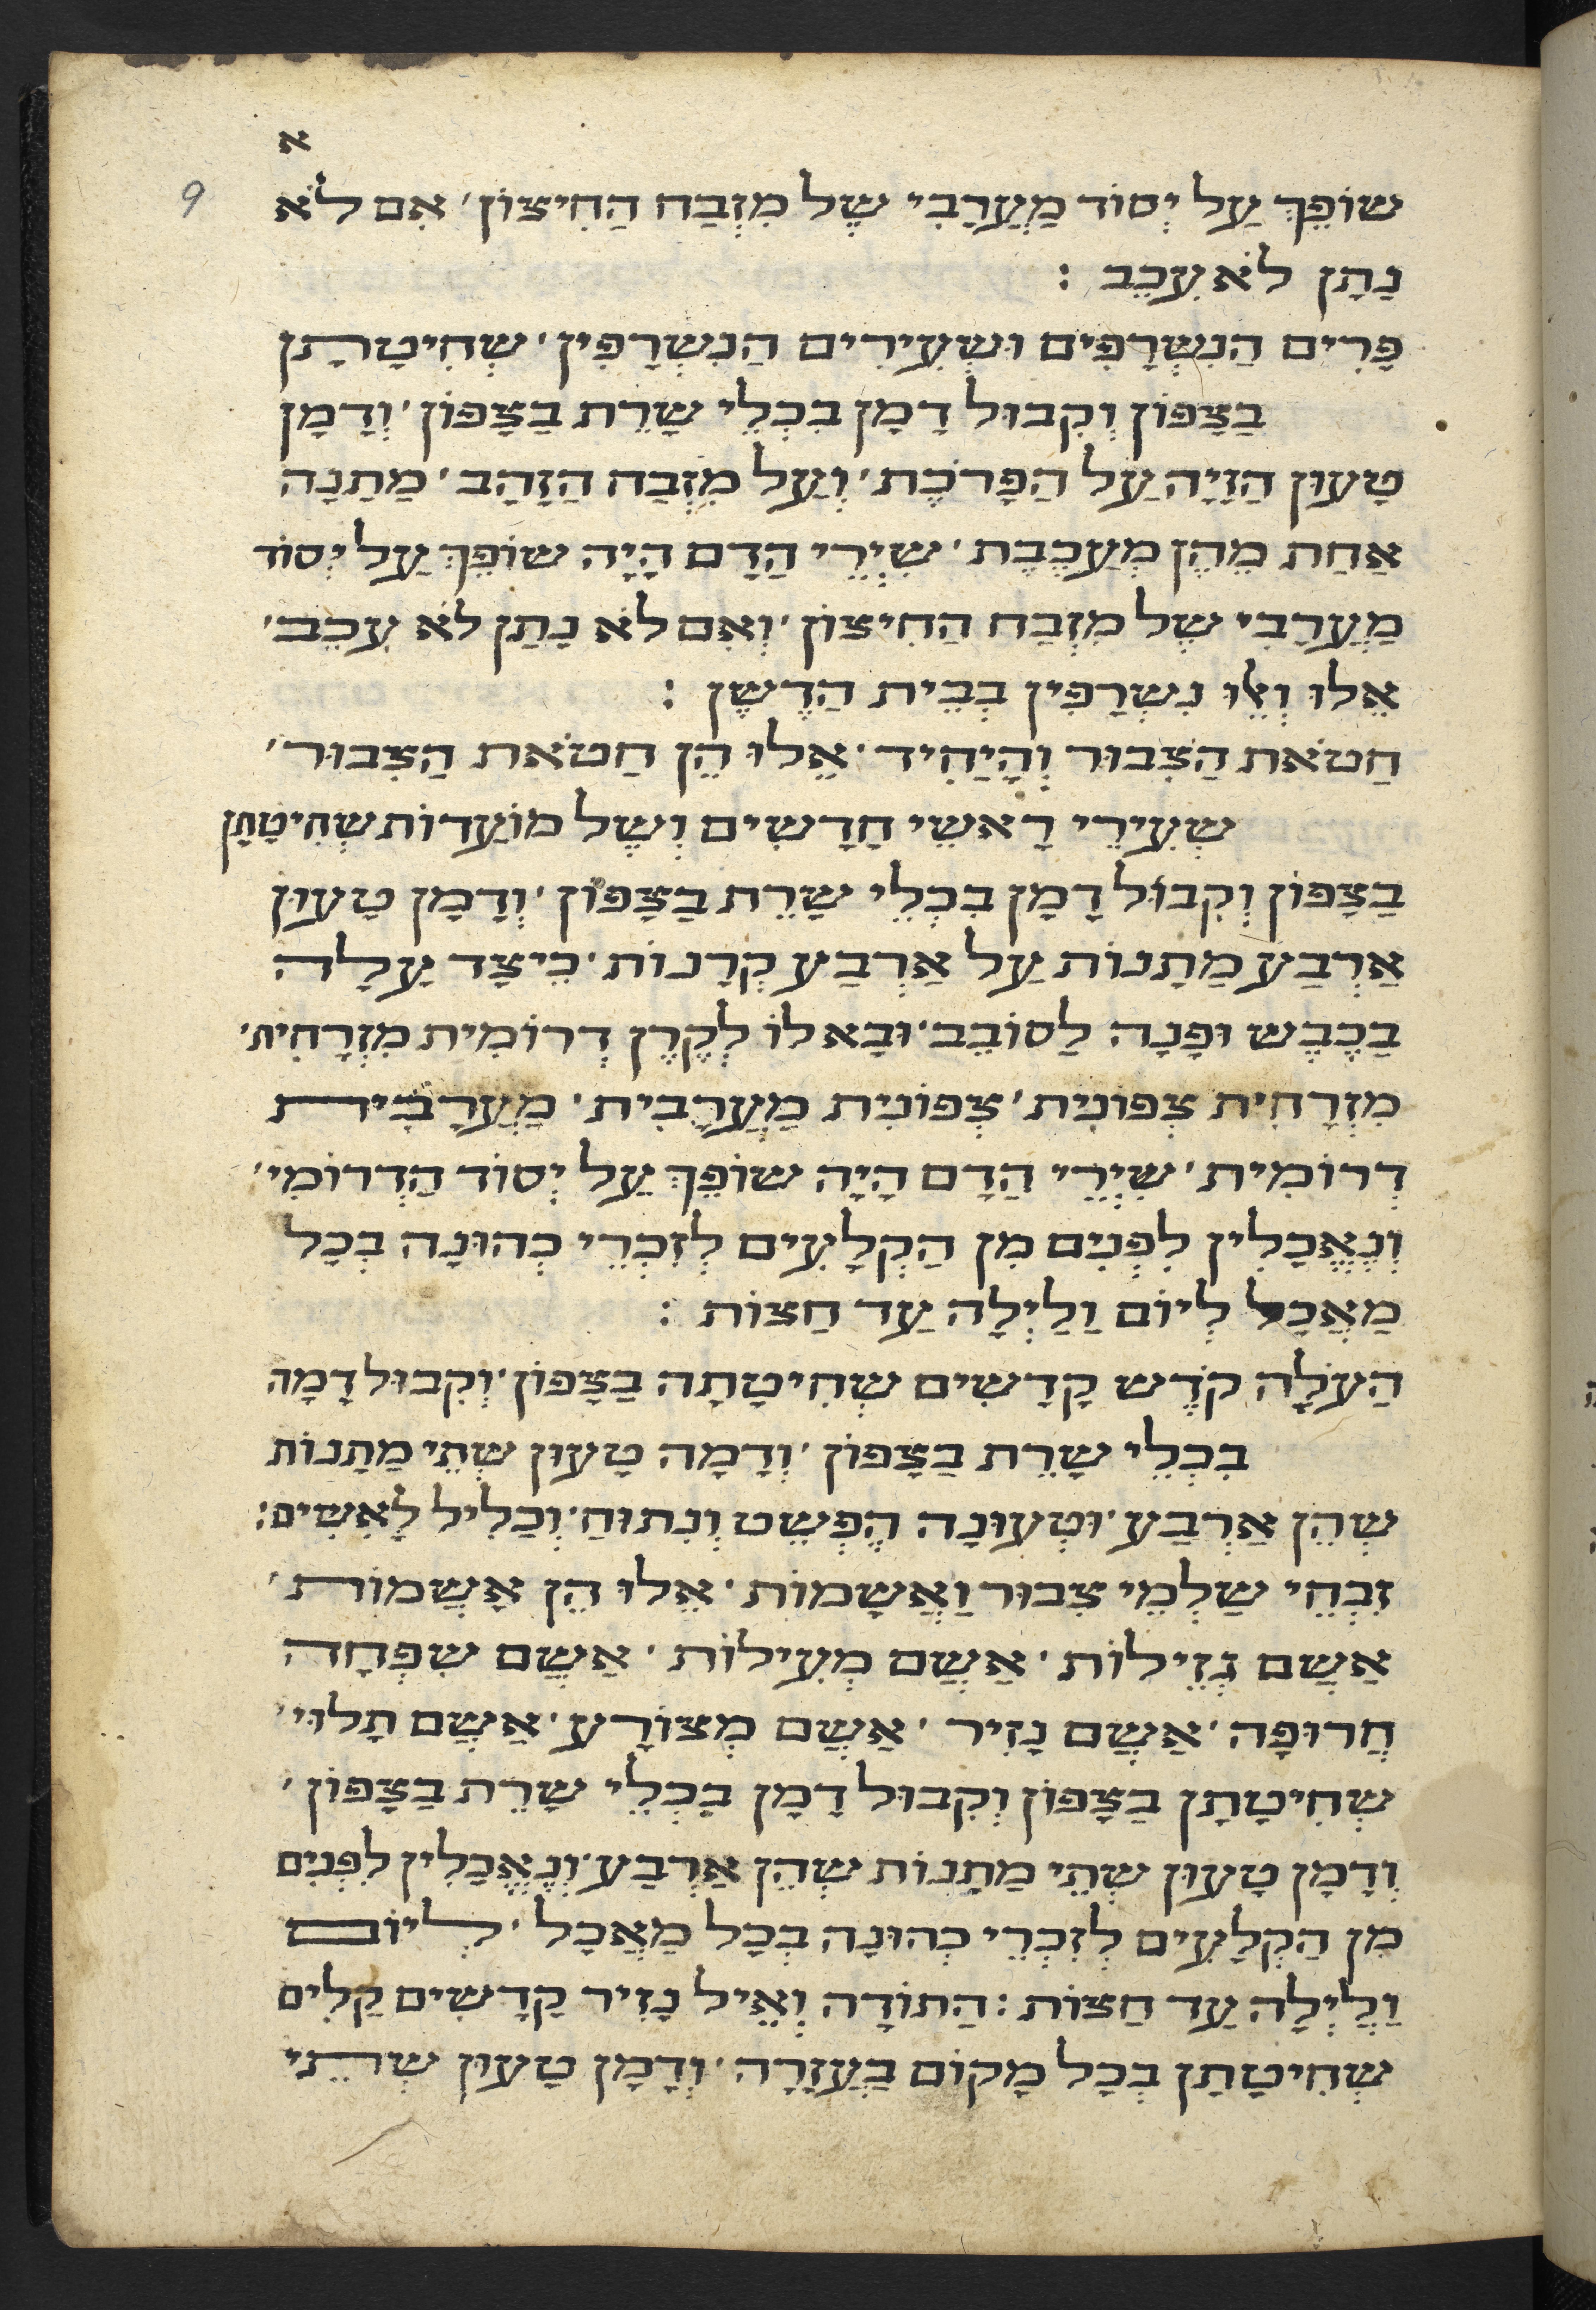 א
9
שׁוֹפֵךְ עַל יְסוֹד מַעֲרָבִי שֶׁל מִזְבַּח הַחִיצוֹן׳ אִם לֹא
נָתַן לֹא עִכֵּב :
פָּרִים הַנִּשְׂרָפִים וּשְׂעִירִים הַנִּשְׂרָפִין׳ שְׁחִיטָתָן
בַּצָּפוֹן וְקִבּוּל דָּמָן בִּכְלֵי שָׁרֵת בַּצָּפוֹן׳ וְדָמָן
טָעוּן הַזָּיָה עַל הַפָּרֹכֶת׳ וְעַל מִזְבַּח הַזָּהָב׳ מַתָּנָה
אַחַת מֵהֶן מְעַכֶּבֶת׳ שִׁיְרֵי הַדָּם הָיָה שׁוֹפֵךְ עַל יְסוֹד
מַעֲרָבִי שֶׁל מִזְבַּח הַחִיצוֹן׳ וְאִם לֹא נָתַן לֹא עִכֵּב׳
אֵלוּ וְאֵלּוּ נִשְׂרָפִין בְּבֵית הַדֶּשֶׁן :
חַטֹּאת הַצִּבּוּר וְהַיָּחִיד׳ אֵלוּ הֵן חַטֹּאת הַצִּבּוּר׳
שְׂעִירֵי רָאשֵׁי חֳדָשִׁים וְשֶׁל מוֹעֲדוֹת שְׁחִיטָתָן
בַּצָּפוֹן וְקִבּוּל דָּמָן בִּכְלֵי שָׁרֵת בַּצָּפוֹן׳ וְדָמָן טָעוּן
אַרְבַּע מַתָּנוֹת עַל אַרְבַּע קְרָנוֹת׳ כֵּיצַד עָלָה
בַּכֶּבֶשׁ וּפָנָה לַסּוֹבֵב׳ וּבָא לוֹ לְקֶרֶן דְּרוֹמִית מִזְרָחִית׳
מִזְרָחִית צְפוֹנִית׳ צְפוֹנִית מַעֲרָבִית׳ מַעֲרָבִית
דְּרוֹמִית׳ שִׁיְרֵי הַדָּם הָיָה שׁוֹפֵךְ עַל יְסוֹד הַדְּרוֹמִי׳
וְנֶאֱכָלִין לִפְנִים מִן הַקְּלָעִים לְזִכְרֵי כְהוּנָּה בְּכָל
מַאֲכָל לְיוֹם וָלַיְלָה עַד חֲצוֹת :
הָעֹלָה קֹדֶשׁ קָדָשִׁים שְׁחִיטָתָהּ בַּצָּפוֹן׳ וְקִבּוּל דָּמָהּ
בִּכְלֵי שָׁרֵת בַּצָּפוֹן׳ וְדָמָהּ טָעוּן שְׁתֵּי מַתָּנוֹת
שְׁהֵן אַרְבַּע׳ וּטְעוּנָה הֶפְשֵׁט וְנִתּוּחַ׳ וְכָלִיל לָאִשִּׁים:
זִבְחֵי שַׁלְמֵי צִבּוּר וַאֲשָׁמוֹת׳ אֵלוּ הֵן אֲשָׁמוֹת׳
אֲשַׁם גְּזֵילוֹת׳ אֲשַׁם מְעִילוֹת׳ אֲשַׁם שִׁפְחָה
חֲרוּפָה׳ אֲשַׁם נָזִיר׳ אֲשַׁם מְצוֹרָע׳ אֲשַׁם תָּלוּי׳
שְׁחִיטָתָן בַּצָּפוֹן וְקִבּוּל דָּמָן בִּכְלֵי שָׁרֵת בַּצָּפוֹן׳
וְדָמָן טָעוּן שְׁתֵּי מַתָּנוֹת שְׁהֵן אַרְבַּע׳ וְנֶאֱכָלִין לִפְנִים
מִן הַקְּלָעִים לְזִכְרֵי כְהוּנָּה בְּכָל מַאֲכָל׳ לְיוֹם
וָלַיְלָה עַד חֲצוֹת : הַתּוֹדָה וְאֵיל נָזִיר קָדָשִׁים קַלִּים
שְׁחִיטָתָן בְּכָל מָקוֹם בָּעֲזָרָה׳ וְדָמָן טָעוּן שְׁתֵּי